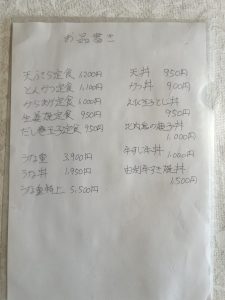 お品書き
天ぷら定食 1,200円
とんかつ定食 1,100円
からあげ定食 1,000円
生姜焼定食 950円
だし巻玉子定食 950円
うな重 3,900円
うな丼 1,950円
うな重特上 5,500円
天丼 950円
かつ丼 900円
えびちらとじ丼
950円
比内鶏の親子丼
1,000円
牛すじ丼 1,000円
由利牛すき焼丼
1,500円